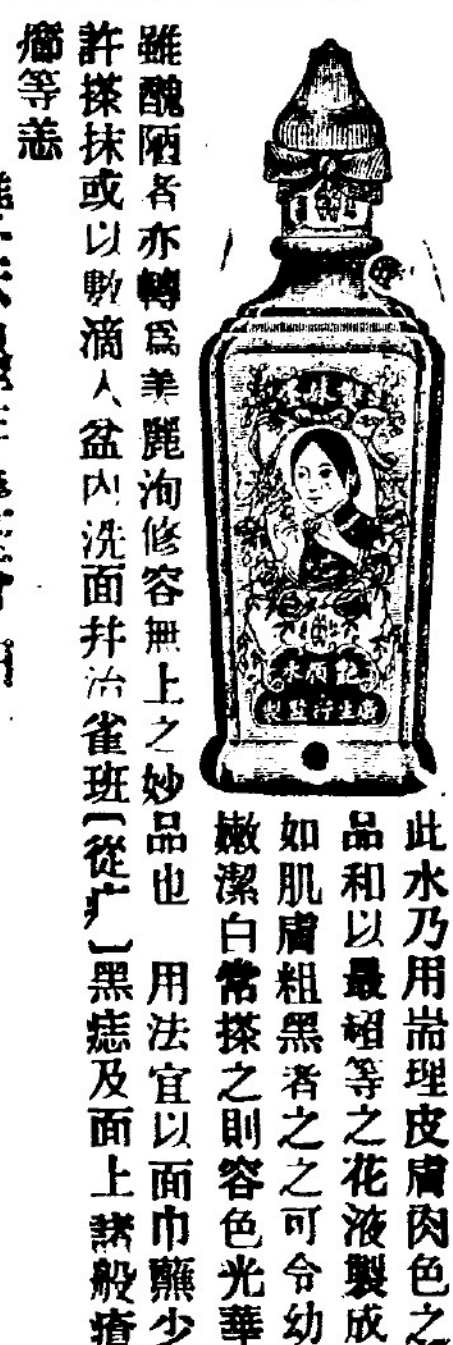 此水乃用耑理皮膚肉色之
品和以最超等之花液製成
如肌膚粗黑者之之可令幼
嫩潔白常搽之則容色光華
雖醜陋者亦轉爲美麗洵修容無上之妙品也 用法宜以面巾蘸少
許搽抹或以數滴人盆內洗面幷治雀班〔從疒〕黑痣及面上諸般瘡
癤等恙
花顏水
廣生行監製